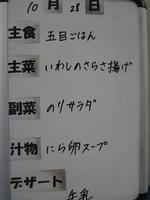 10月28日
主食 五目ごはん
主菜 いわしのさらさ揚げ
副菜 のりサラダ
汁物 にら卵スープ
デザート
牛乳